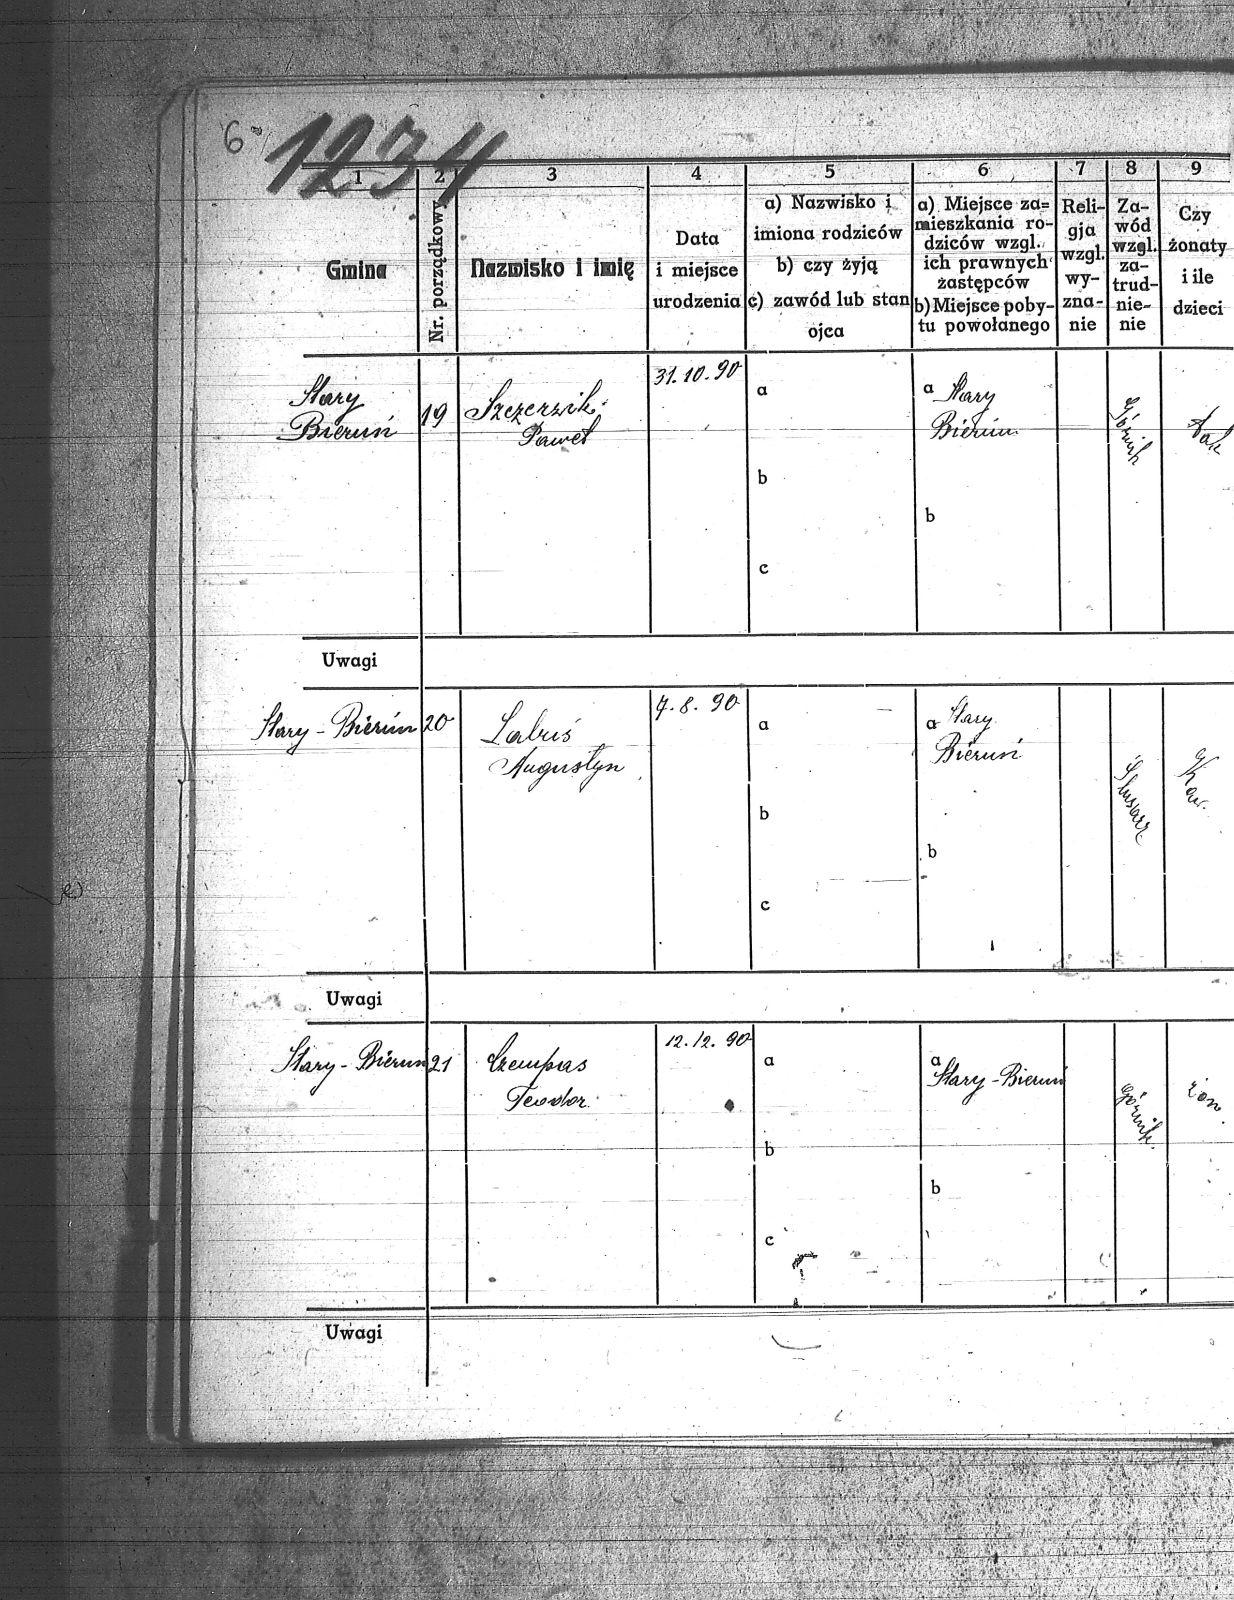 6a
1234
1 2 3 4 5 6 7 8 9
Gmina
Nr. porządkowy
Nazwisko i imię
Data
i miejsce
urodzenia
a) Nazwisko i
imiona rodziców
b) czy żyją
c) zawód lub stan
ojca
a) Miejsce za=
mieszkania ro-
dziców wzgl.
ich prawnych
zastępców
b) Miejsce poby-
tu powołanego
Reli-
gja
wzgl.
wy-
zna-
nie
Za-
wód
wzgl.
za-
trud-
nie-
nie
Czy
żonaty
i ile
dzieci
Stary
Bieruń
19
Szczerzik
Paweł
31.10.90
a
b
c
a Stary
Bieruń
b
Górnik
tak
Uwagi
Stary - Bieruń 20
Labuś
Augustyn
4.8.90
a
b
c
a Stary
Bieruń
b
Ślusarz
Kaw.
Uwagi
Stary - Bieruń 21
Czempas
Teodor
12.12.90
a
b
c
a
Stary - Bieruń
b
Górnik
żon.
Uwagi